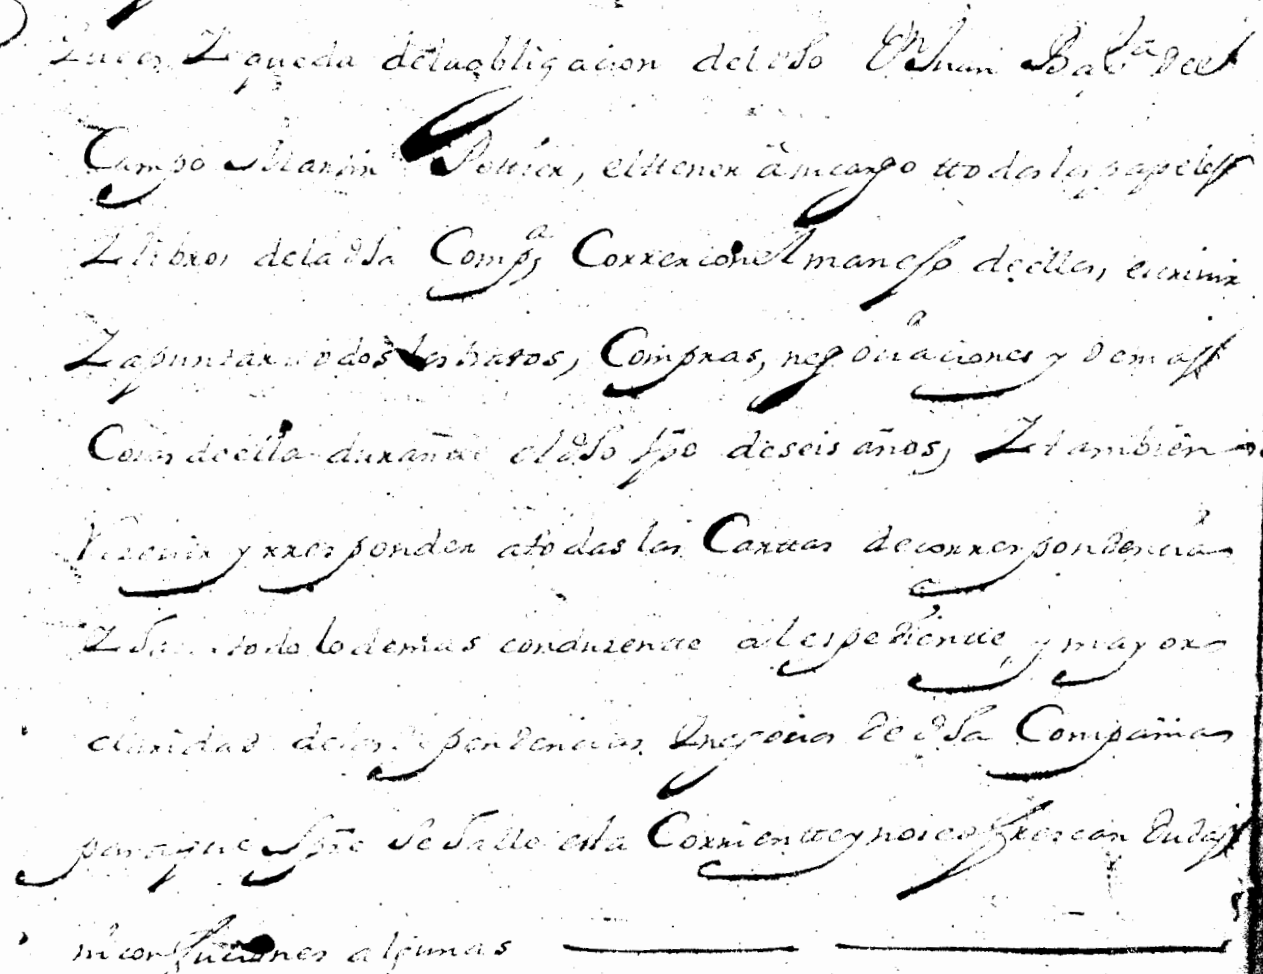 Zqueda delaobligacion del dho Dn Juan Bapta Del
Campo Marin Pottier, elttener â mcargo ttodos los papeles
Z libros dela dha Compa, Correr con el manejo deellos, escrivir
Z apuntar todos los tratos, Compras, negociaciones y Demas
Cosas deella durante el dho tpo deseis años, Z también
Rezevir y rresponder atodas las Carttas decorrespondencia
Z todo lo demas conduzentte al espedientte, y mayor
claridad delas dependencias Znegocios de dha Compañia
para que spre se halle esta Corrientte y no se ofrescan dudas
ni confuciones algunas